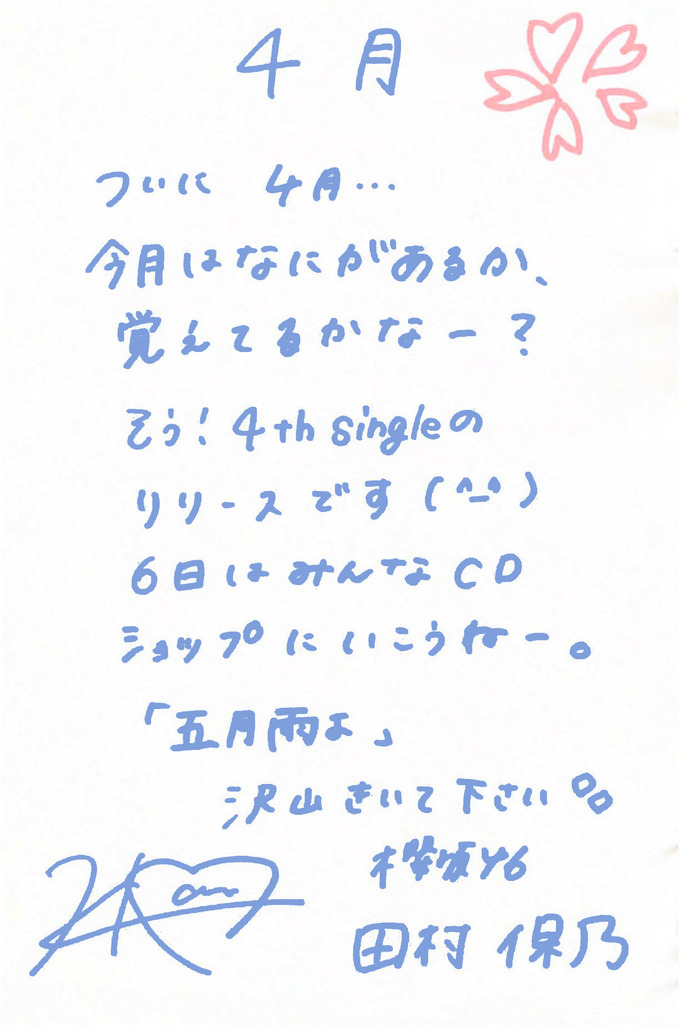 4月
ついに 4月…
今月はなにがあるか、
覚えてるかなー?
そう! 4th singleの
リリースです(^_^)
6日はみんなCD
ショップにいこうねー。
「五月雨よ」
沢山きいて下さい
櫻坂46
田村保乃